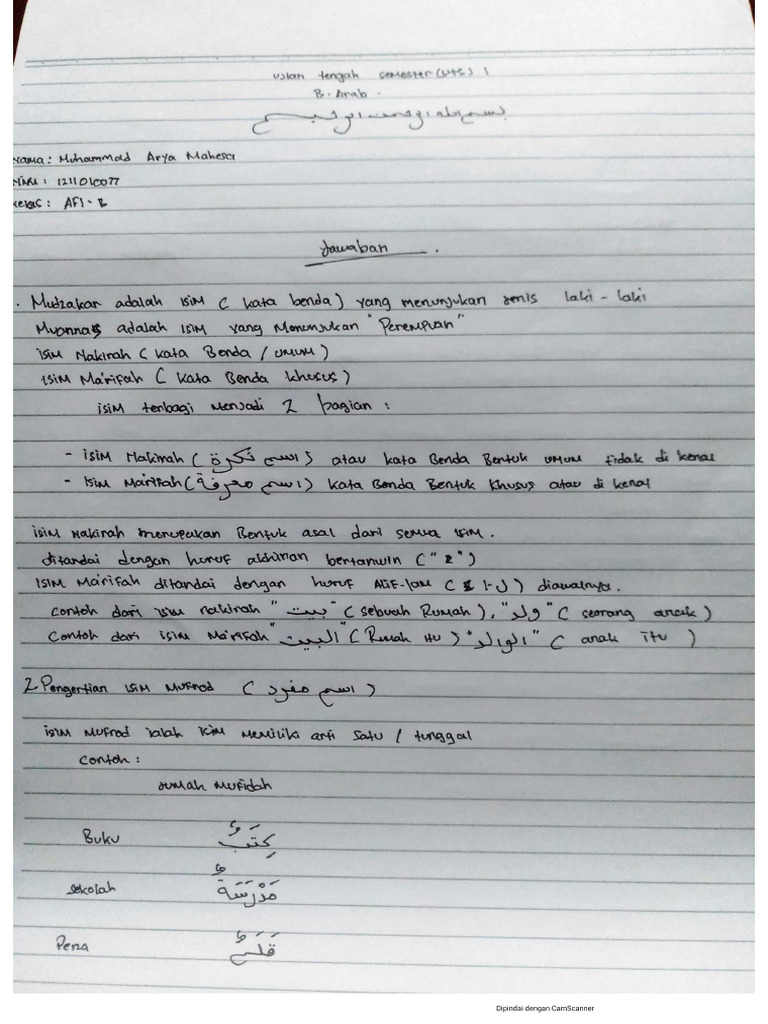 Ujian tengah semester (UTS) 1
B. Arab.
بسم الله الرحمن الرحيم
Nama: Muhammad Arya Mahesa
NIM: 1211010077
Kelas: AFI-B
Jawaban.
. Mudzakar adalah isim (kata benda) yang menunjukan jenis laki-laki
Muannas adalah isim yang Menunjukan "Perempuan"
isim Nakirah (kata Benda / umum)
isim Ma'rifah (kata Benda khusus)
isim terbagi menjadi 2 bagian:
- isim Nakirah (اسم نكرة) atau kata Benda Bentuk umum tidak di kenal
- Isim Ma'rifah (اسم معرفة) kata Benda Bentuk Khusus atau di kenal
isim Nakirah merupakan Bentuk asal dari semua isim.
ditandai dengan huruf akhiran bertanwin ("2")
Isim Ma'rifah ditandai dengan huruf Alif-lam (ا-ل) diawalnya.
Contoh dari isim nakirah "بيت" (sebuah Rumah), "ولد" (seorang anak)
Contoh dari isim Ma'rifah "البيت" (Rumah itu) "الولد" (anak itu)
2. Pengertian isim Mufrod (اسم مفرد)
isim Mufrod ialah isim Memiliki arti satu / tunggal
Contoh:
Jumlah Mufidah
Buku كِتَبٌ
Sekolah مَدْرَسَةٌ
Pena قَلَمٌ
Dipindai dengan CamScanner